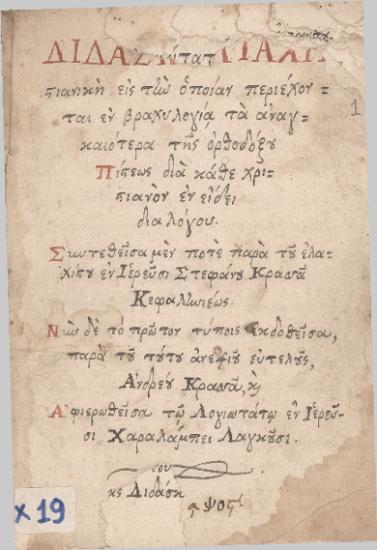 ΔΙΔΑΣ
τιανικὴ εἰς τὼ ὁποίαν περιέχον=
ται ἐν βραχυλογίᾳ τὰ ἀναγ=
καιότερα τῆς ὀρθοδόξου
Πίστεως διὰ κάθε χρι=
στιανὸν ἐν εἴδει
διαλόγου.
Συντεθεῖσα μὲν ποτὲ παρὰ τοῦ ἐλα=
χίστου ἐν Ἱερεῦσι Στεφάνου Κρασᾶ
Κεφαλωνιέως.
Νῶ δὲ τὸ πρῶτον τύποις ἐκδοθεῖσα,
παρὰ τοῦ τούτου ἀνεψιοῦ εὐτελοῦς,
Ἀνδρέου Κρασᾶ, ϗ
Ἀφιερωθεῖσα τῷ Λογιωτάτῳ ἐν Ἱερεῦ=
σι Χαραλάμπει Λαγκουσι.
του
κς Διδάσκ
1
x 19